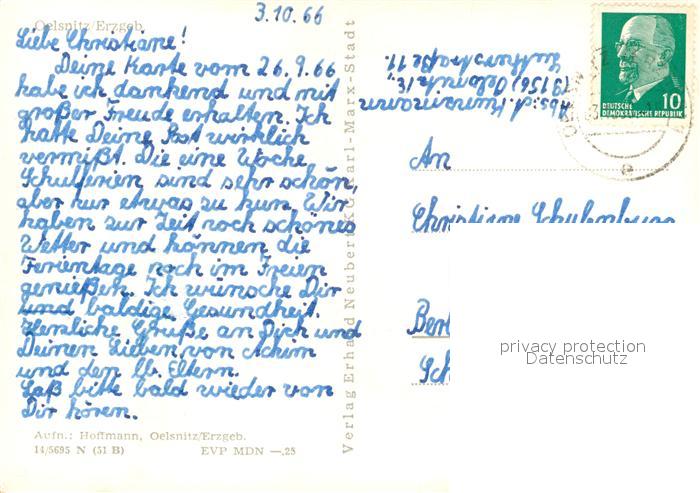 3.10.66
Oelsnitz/Erzgeb.
Liebe Christiane!
Deine Karte vom 26.9.66
habe ich dankend und mit
großer Freude erhalten. Ich
hatte Deine Post wirklich
vermißt. Die eine Woche
Schulferien sind sehr schön,
aber nur etwas zu kurz. Wir
haben zur Zeit noch schönes
Wetter und können die
Ferientage noch im Freien
genießen. Ich wünsche Dir
und baldige Gesundheit.
Herzliche Grüße an Dich und
Deinen Lieben von Achim
und den lb. Eltern.
Laß bitte bald wieder von
Dir hören.
Aufn.: Hoffmann, Oelsnitz/Erzgeb.
14/5695 N (51 B) EVP MDN —.25
Verlag Erhard Neubert KG Karl-Marx-Stadt
Abs.: A. Kunzmann
(9156) Oelsnitz/E.
Lutherstraße 11.
10
DEUTSCHE
DEMOKRATISCHE REPUBLIK
An
Christiane Schulenburg
Berl
Sch
privacy protection
Datenschutz